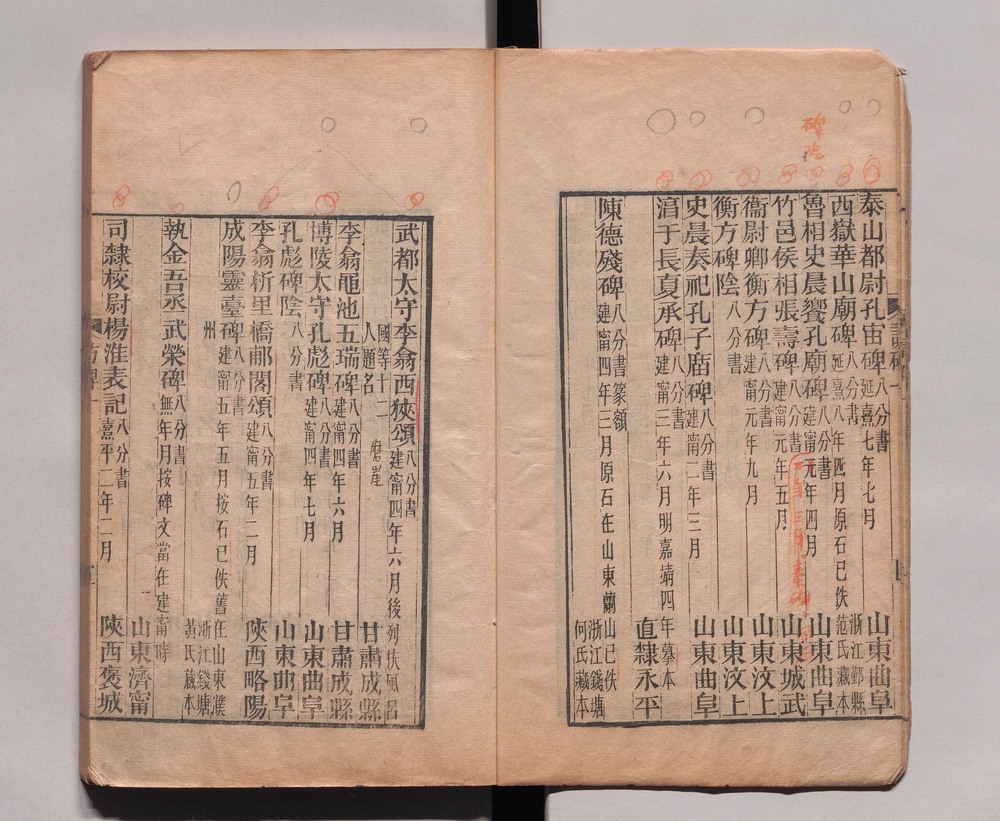 泰山都尉孔宙碑 八分書 延熹七年七月 山東曲阜
西嶽華山廟碑 八分書 延熹八年四月原石已佚 浙江鄞縣范氏藏本
魯相史晨饗孔廟碑 八分書 建甯元年四月 山東曲阜
碑陰
竹邑侯相張壽碑 八分書 建甯元年五月 山東城武
衞尉卿衡方碑 八分書 建甯元年九月 山東汶上
衡方碑陰 八分書 山東汶上
史晨奏祀孔子廟碑 八分書 建甯二年三月 山東曲阜
淯于長夏承碑 八分書 建甯三年六月明嘉靖四年摹本 直隸永平
陳德殘碑 八分書篆額 建甯四年三月原石在山東蘭山已佚 浙江錢塘何氏藏本
武都太守李翕西狹頌 八分書 建甯四年六月後列扶風呂
國等十二人題名 磨崖 甘肅成縣
李翕黽池五瑞碑 八分書 建甯四年六月 甘肅成縣
博陵太守孔彪碑 八分書 建甯四年七月 山東曲阜
孔彪碑陰 八分書 山東曲阜
李翕析里橋郙閣頌 八分書 建甯五年二月 陝西略陽
成陽靈臺碑 八分書 建甯五年五月按石已佚舊在山東濮
州 浙江錢塘黃氏藏本
執金吾丞武榮碑 八分書 無年月按碑文當在建甯時 山東濟甯
司隸校尉楊淮表記 八分書 熹平二年二月 陝西褒城